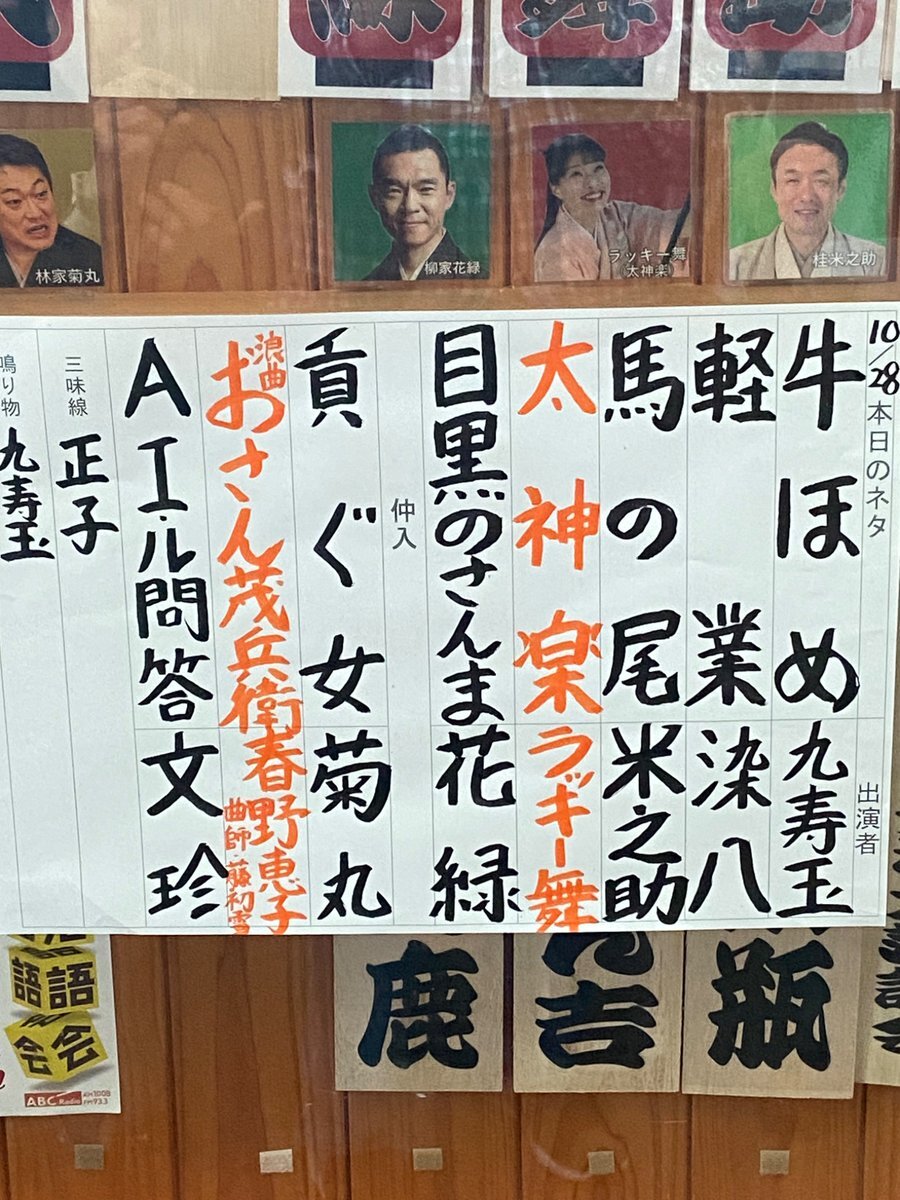 林家菊丸
柳家花緑
ラッキー舞
(太神楽)
桂米之助
10/28 本日のネタ 出演者
牛ほめ 九寿玉
軽業 染八
馬の尾 米之助
太神楽 ラッキー舞
目黒のさんま 花緑
仲入
貢ぐ女 菊丸
浪曲 おさん茂兵衛 春野恵子
曲師・藤初雪
AI・ル問答 文珍
三味線 正子
鳴り物 九寿玉
鹿
吉
瓶
語語
会会
ABC Radio AM1008 FM93.3